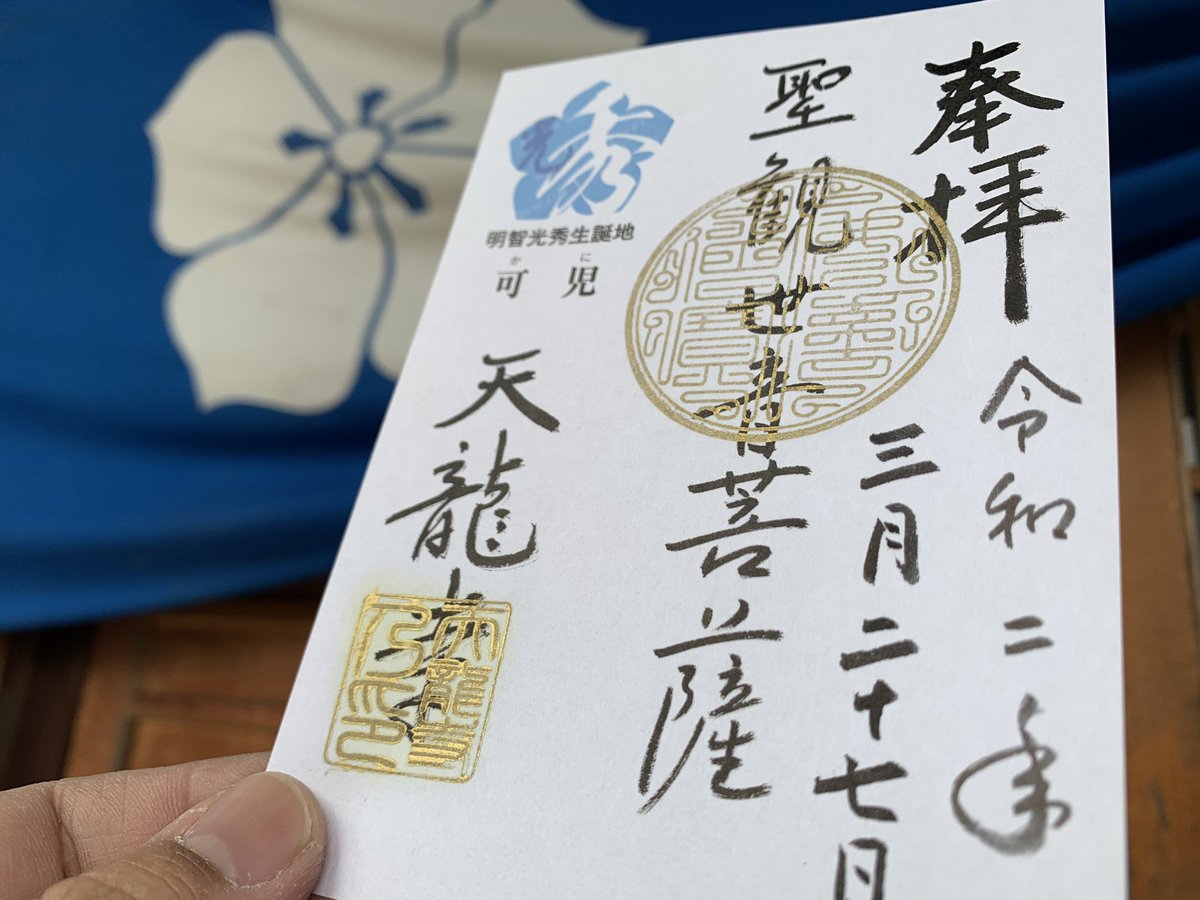 奉拝
令和二年
三月二十七日
聖観世音菩薩
光秀
明智光秀生誕地
かに
可児
天龍寺
天龍寺
乃印